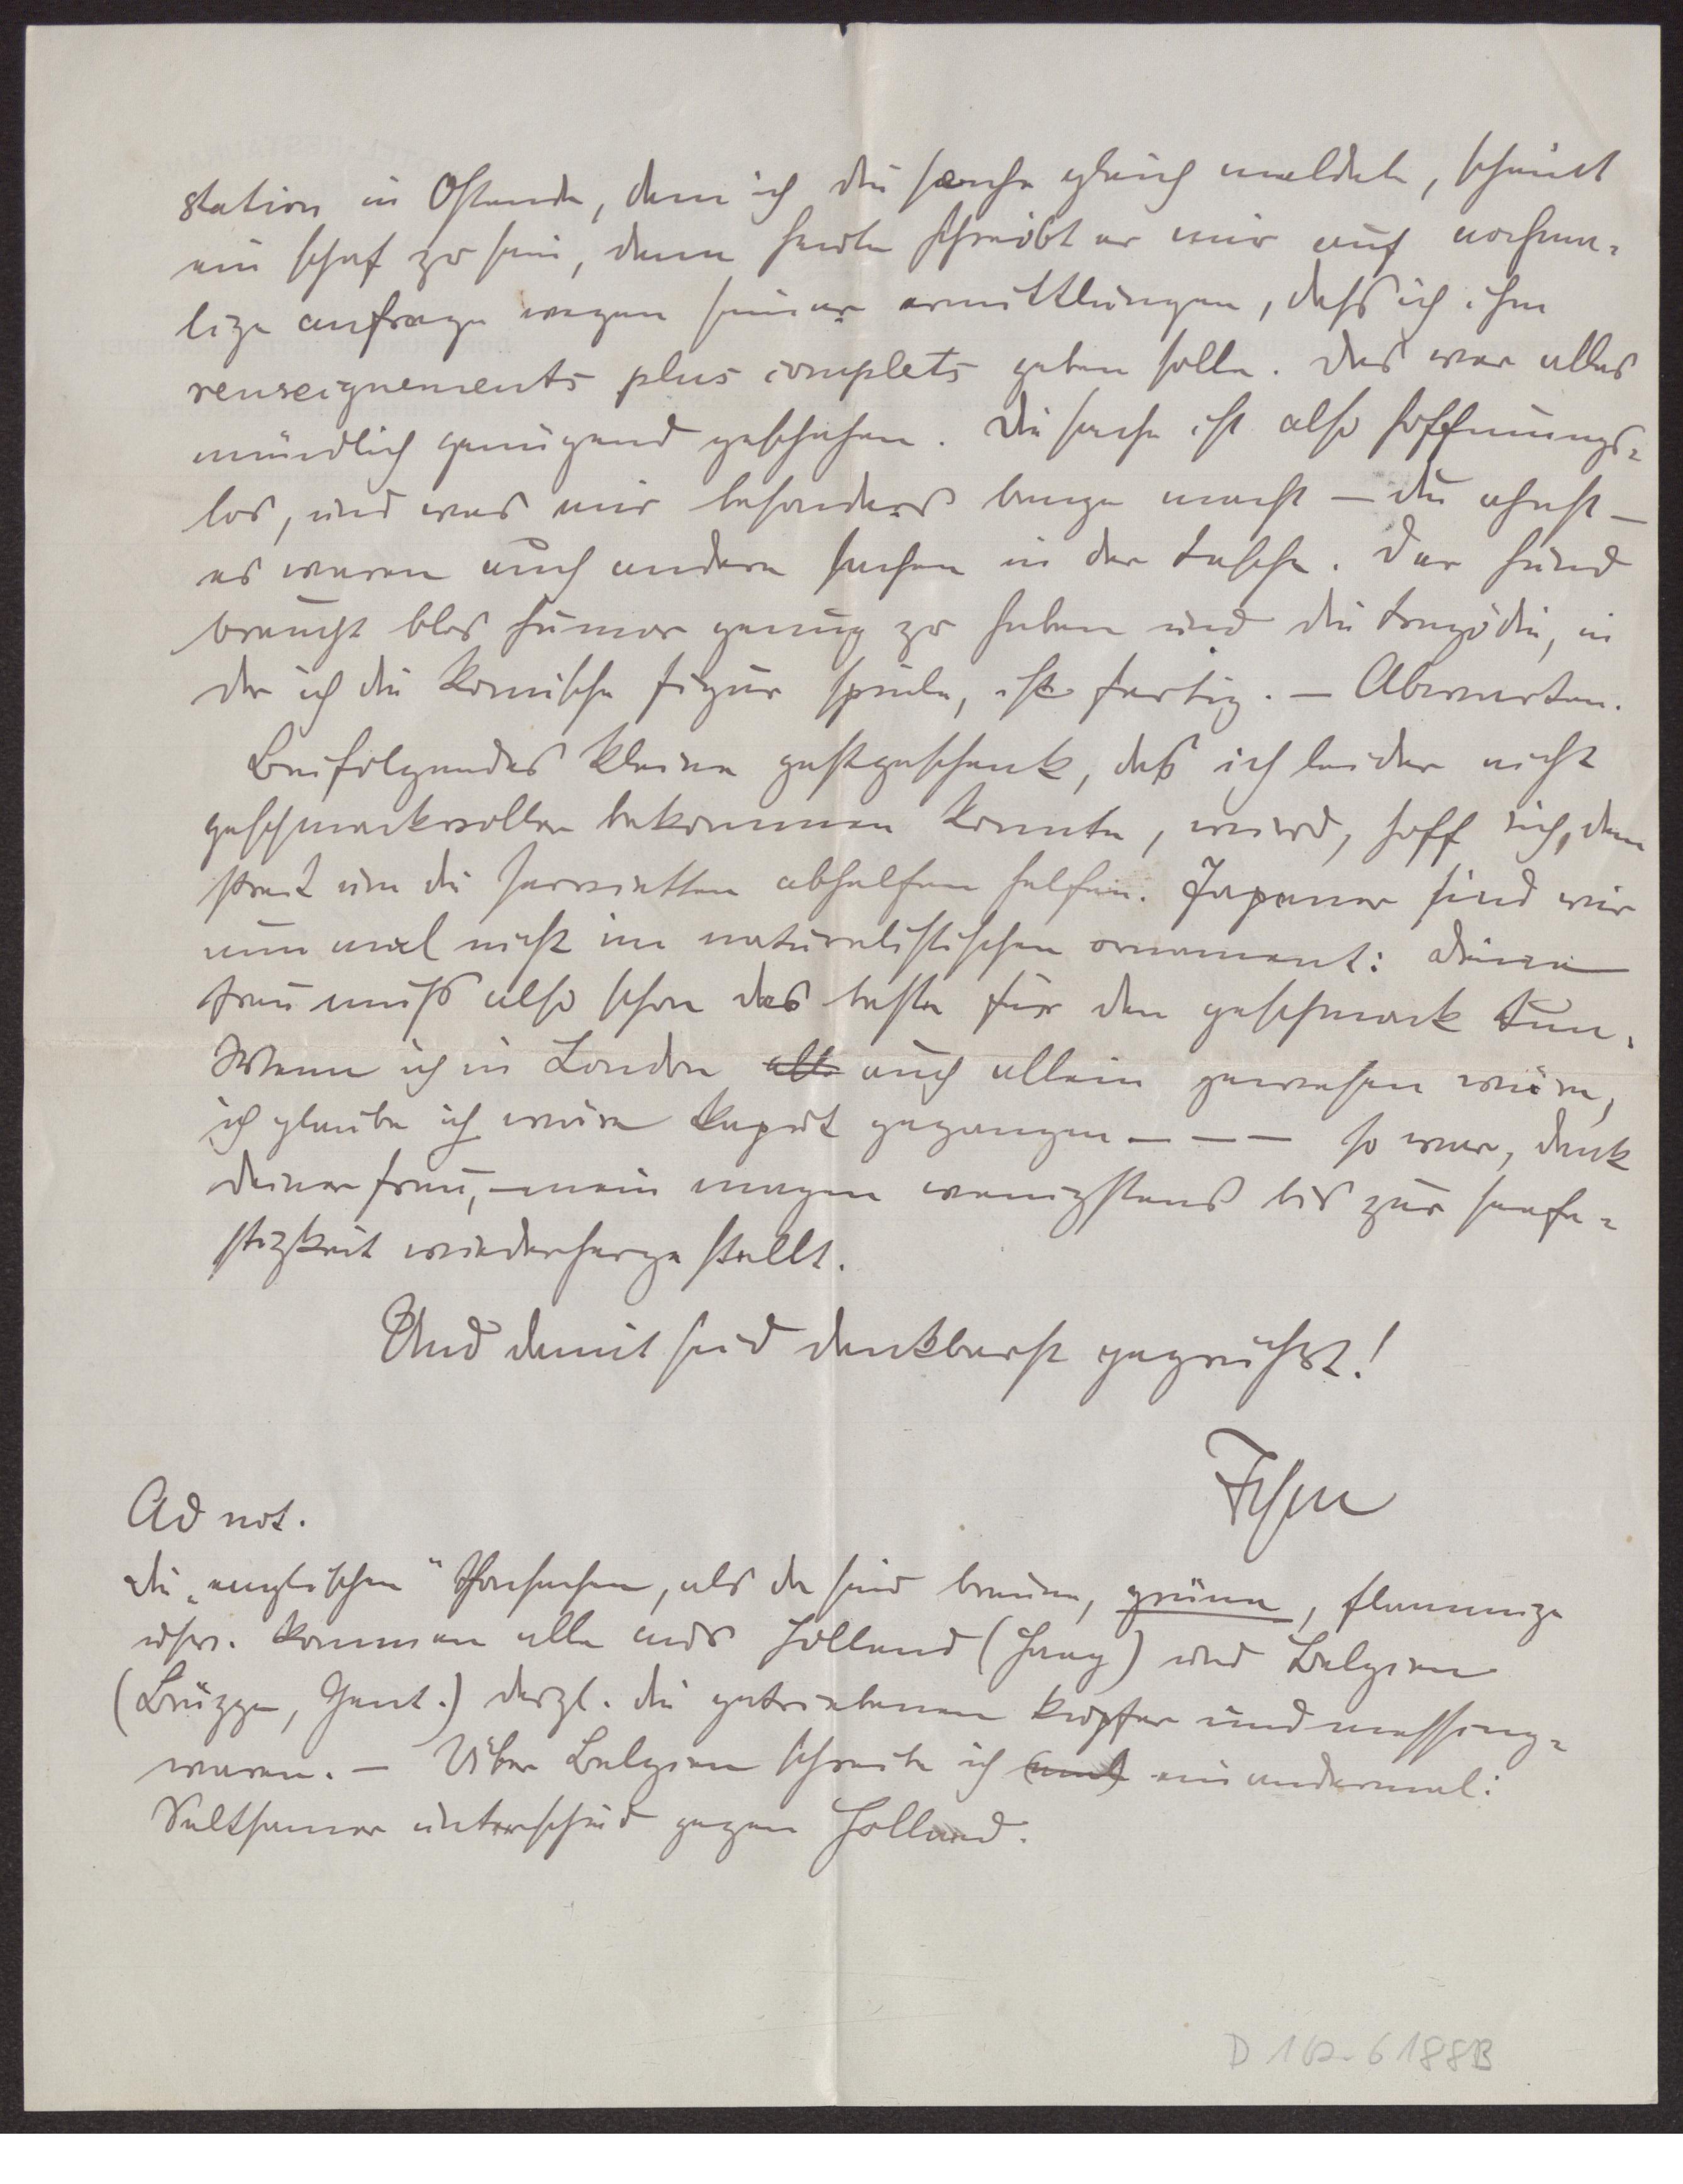 station in Ostende, dem ich die sache gleich meldete, scheint
ein schaf zu sein, denn heute schreibt er mir auf nochma-
lige anfrage wegen seiner ermittlungen, dass ich ihm
renseignements plus complets geben solle. Das war alles
mündlich genügend geschehen. Die sache ist also hoffnungs-
los, und was mir besonders bange macht – du ahnst –
es waren auch andere sachen in der tasche. Der hund
braucht blos humor genug zu haben und die tragödie, in
der ich die komische figur spiele, ist fertig. – Abwarten.
Beifolgendes kleine gastgeschenk, daß ich leider nicht
geschmackvoller bekommen konnte, wird, hoff ich, dem
streit um die servietten abhelfen helfen. Japaner sind wir
nun mal nicht im naturalistischen ornament: deine
frau muß also schon das beste für den geschmack tun.
Wenn ich in London all. auch allein gewesen wäre,
ich glaube ich wäre kaput gegangen – – – so war, dank
deiner frau, – mein magen wenigstens bis zur seefe-
stigkeit wiederhergestellt.
Und damit seid dankbarst gegrüsst!
Ad not.
die „englischen" thonsachen, als da sind braune, grüne, flammige
usw. kommen alle aus Holland (Haag) und Belgien
(Brügge, Gent.) desgl. die getriebenen kupfer und messing-
waren. – Über Belgien schreibe ich ein andermal:
Seltsamer unterschied gegen Holland.